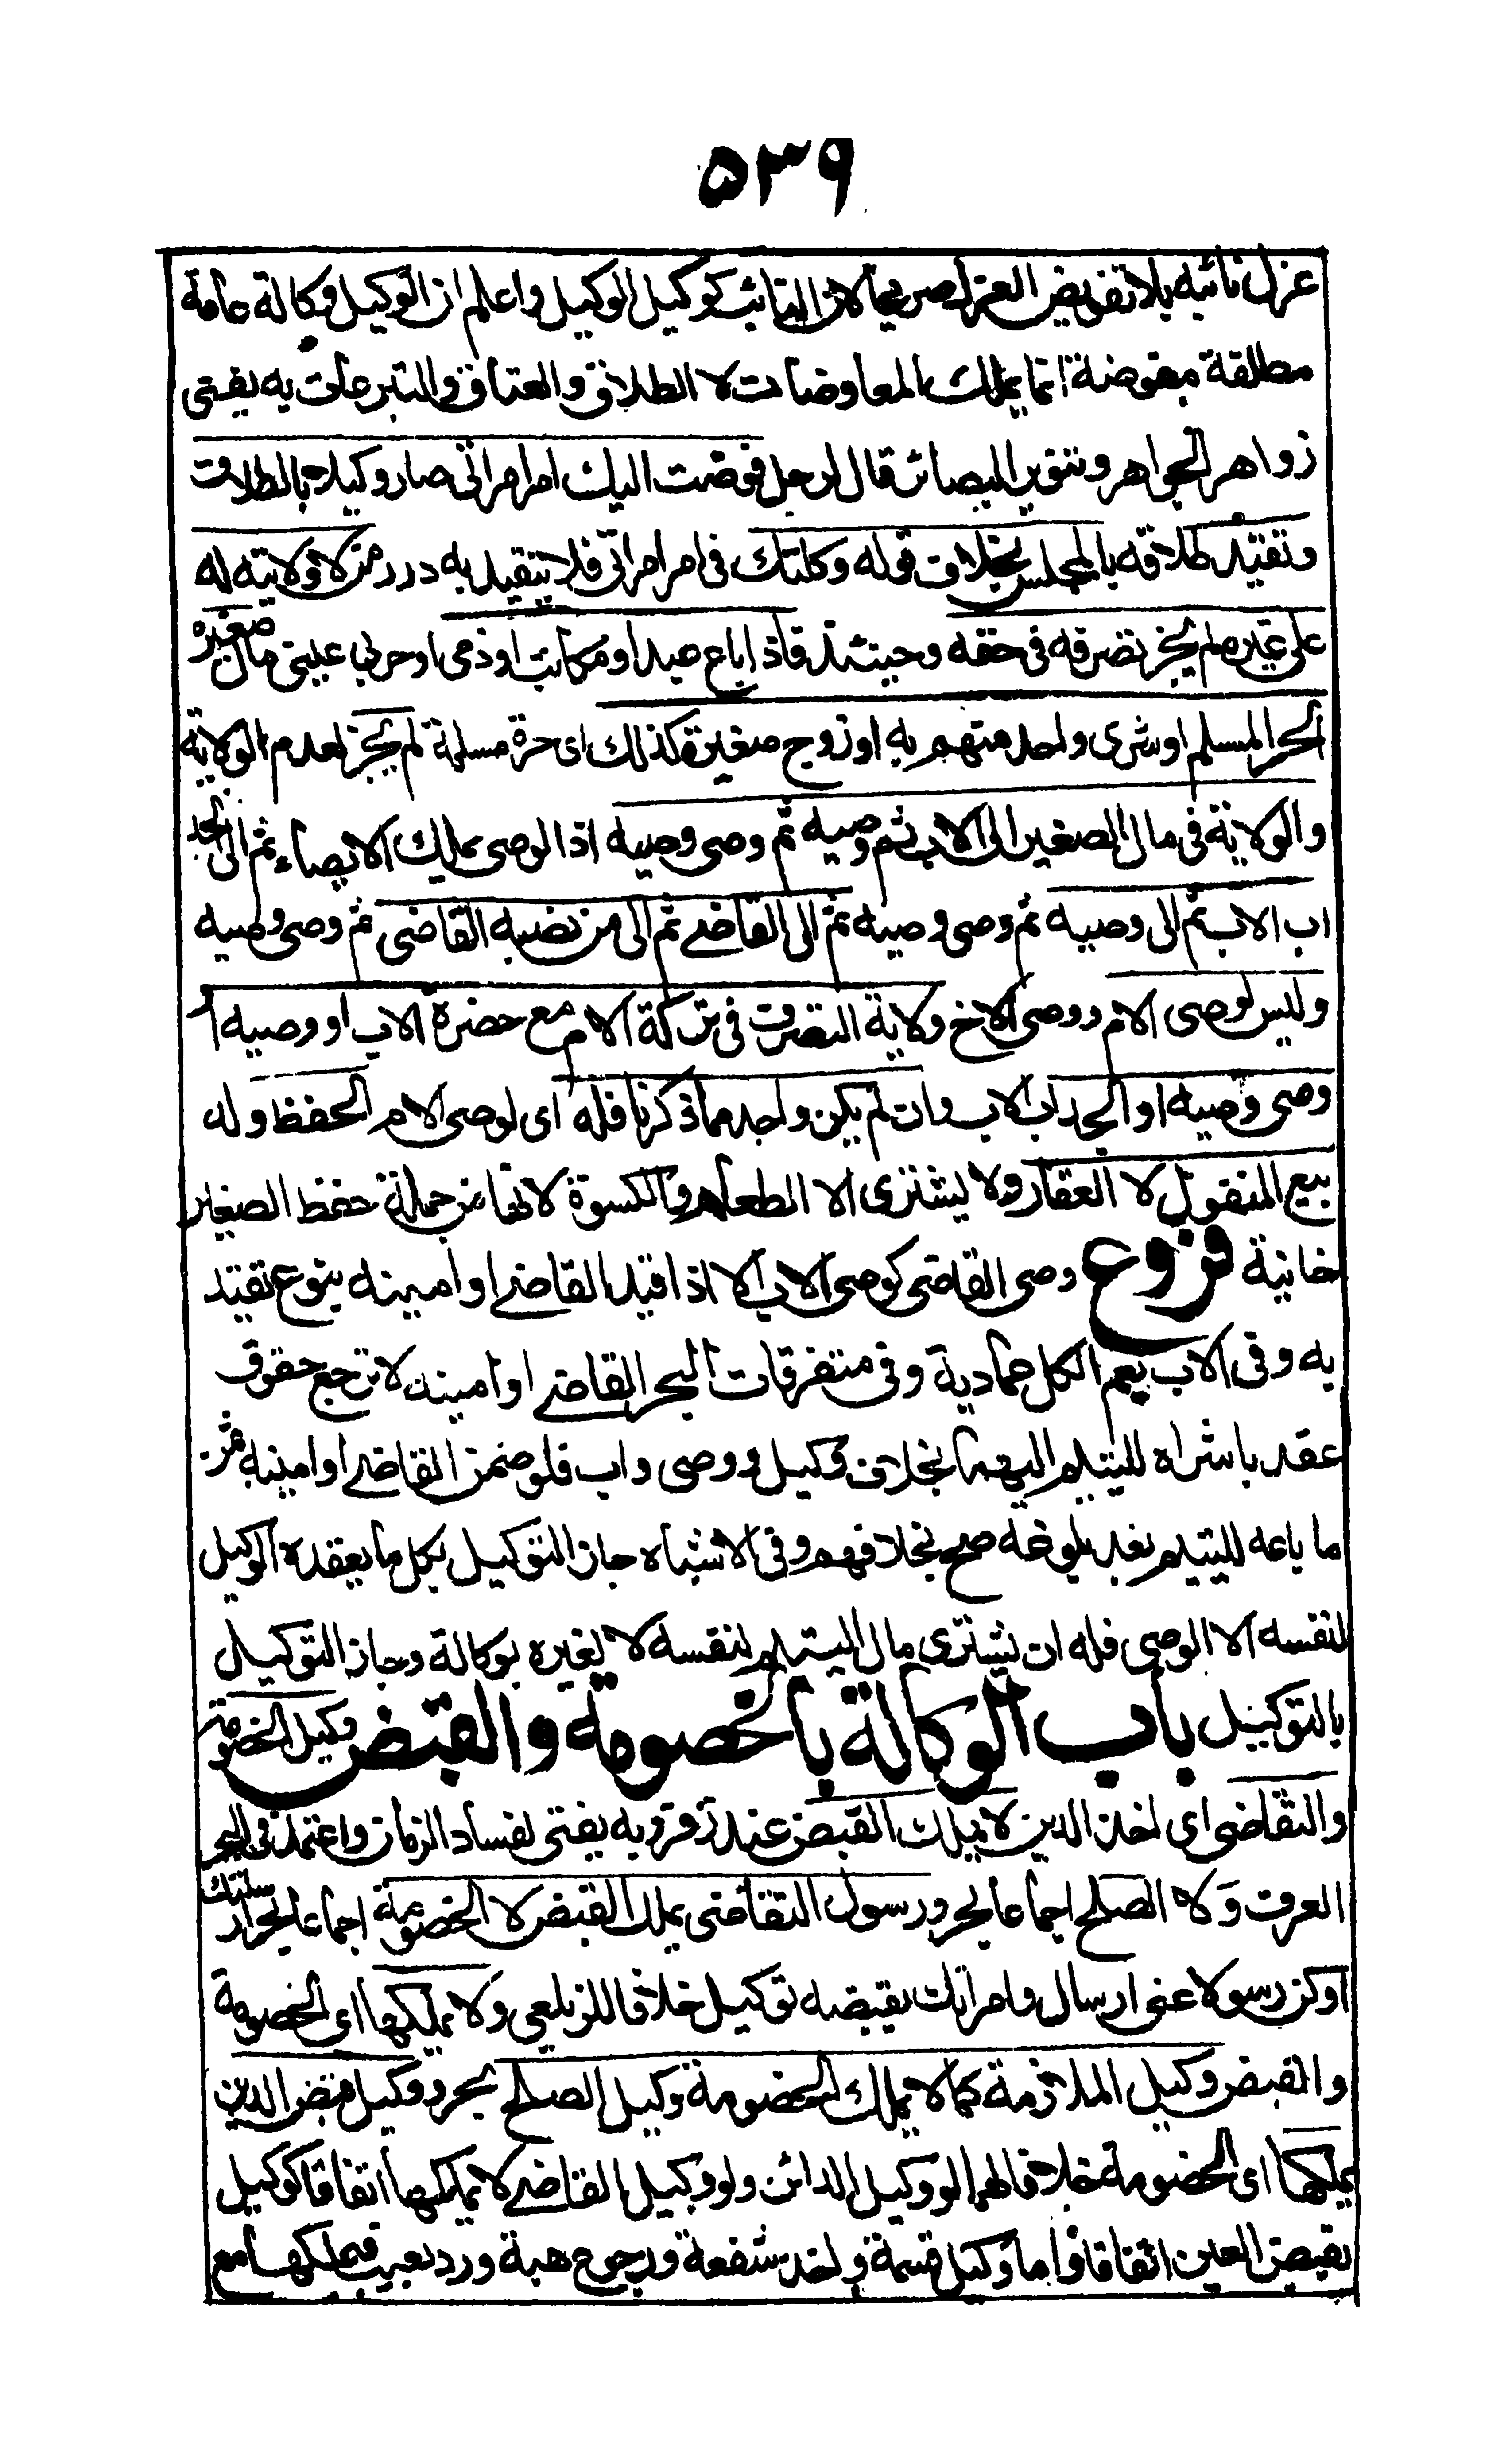 ٥٣٩
عزل نائبه بلا تفويض العزل صريحا لان النائب كوكيل الوكيل واعلم ان الوكيل وكالة عامة
مطلقة مفوضة انما يملك المعاوضات لا الطلاق والعتاق والتبرعات به يفتى
زواهر الجواهر وتنوير البصائر قال لرجل فوضت اليك امر امراتى صار وكيلا بالطلاق
وتقيد طلاقه بالمجلس بخلاف قوله وكلتك فى امر امراتى فلا يتقيد به درر من لا ولاية له
على غيره لم يجز تصرفه فى حقه وحينئذ فاذا باع عبد او مكاتب او ذمى او حربى عينى مال صغيره
الحر المسلم او شرى واحد منهم به او زوج صغيرة كذلك اى حرة مسلمة لم يجز لعدم الولاية
والولاية فى مال الصغير الى الاب ثم وصيه ثم وصى وصيه اذ الوصى يملك الايصاء ثم الى الجد
اب الاب ثم الى وصيه ثم وصى وصيه ثم الى القاضى ثم الى من نصبه القاضى ثم وصى وصيه
وليس لوصى الام ووصى الاخ ولاية التصرف فى تركة الام مع حضرة الاب او وصيه او
وصى وصيه او الجد اب الاب وان لم يكن واحد مما ذكرنا فله اى لوصى الام الحفظ وله
بيع المنقول لا العقار ولا يشترى الا الطعام والكسوة لانها من جملة حفظ الصغير
خانية فروع وصى القاضى كوصى الاب الا اذا قيد القاضى او امينه بنوع تقيد
به وفى الاب يعم الكل عمادية وفى متفرقات البحر القاضى او امينه لا ترجع حقوق
عقد باشراه لليتيم اليهما بخلاف وكيل ووصى واب فلو ضمن القاضى او امينه ثمن
ما باعه لليتيم بعد بلوغه صح بخلافهم وفى الاشباه جاز التوكيل بكل ما يعقده الوكيل
لنفسه الا الوصى فله ان يشترى مال اليتيم لنفسه لا لغيره بوكالة وجاز التوكيل
بالتوكيل باب الوكالة بالخصومة والقبض وكيل الخصومة
والتقاضى اى اخذ الدين لا يملك القبض عند زفر وبه يفتى لفساد الزمان واعتمد فى البحر
العرف ولا الصلح اجماعا بحر ورسول التقاضى يملك القبض لا الخصومة اجماعا بحر ارسلتك
او كن رسولا عنى ارسال وامرتك بقبضه توكيل خلافا للزيلعى ولا يملكها اى الخصومة
والقبض وكيل الملازمة كما لا يملك الخصومة وكيل الصلح بحر ووكيل قبض الدين
يملكها اى الخصومة خلافا لهما لو وكيل الدائن ولو وكيل القاضى لا يملكها اتفاقا كوكيل
بقبض العين اتفاقا واما وكيل قسمة واخذ شفعة ورجوع هبة ورد بعيب فيملكها مع